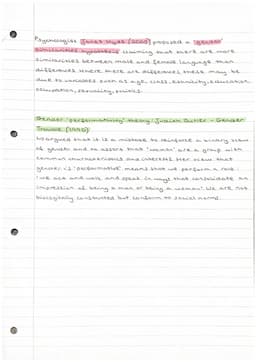 Psychologist Janet Hyde (2005) proposed a 'gender
similarities hypothesis' claiming that there are more
similarities between male and female language than
differences. Where there are differences these may be
due to variables such as age, class, ethnicity, education,
occupation, sexuality, politics.
Gender 'performativity' theory: Judith Butler - Gender
Trouble (1990)
He argued that it is a mistake to reinforce a binary view
of gender and to assert that 'women' are a group with
common characteristics and interests. Her view that
gender is 'performative' means that we perform a role.
'we act and walk and speak in ways that consolidate an
impression of being a man or being a woman'. We are not
biologically constructed but conform to social norms.